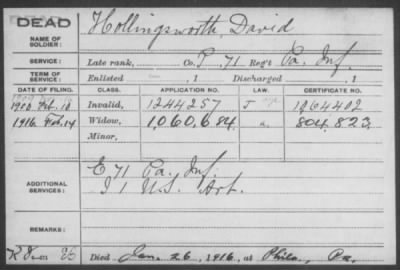 DEAD
NAME OF SOLDIER: Hollingsworth, David
SERVICE: Late rank, Co. 71 Reg't Pa. Inf.
TERM OF SERVICE: Enlisted , 1 Discharged , 1
DATE OF FILING. CLASS. APPLICATION NO. LAW. CERTIFICATE NO.
Feb. 18 Invalid, 1244257 J 1064402
1916 Feb. 14 Widow, 1,060,684 a. 804,823
Minor,
ADDITIONAL SERVICES: E 71 Pa. Inf.
I 1 U.S. Art.
REMARKS:
Died Jan. 26, 1916, at Phila, Pa.